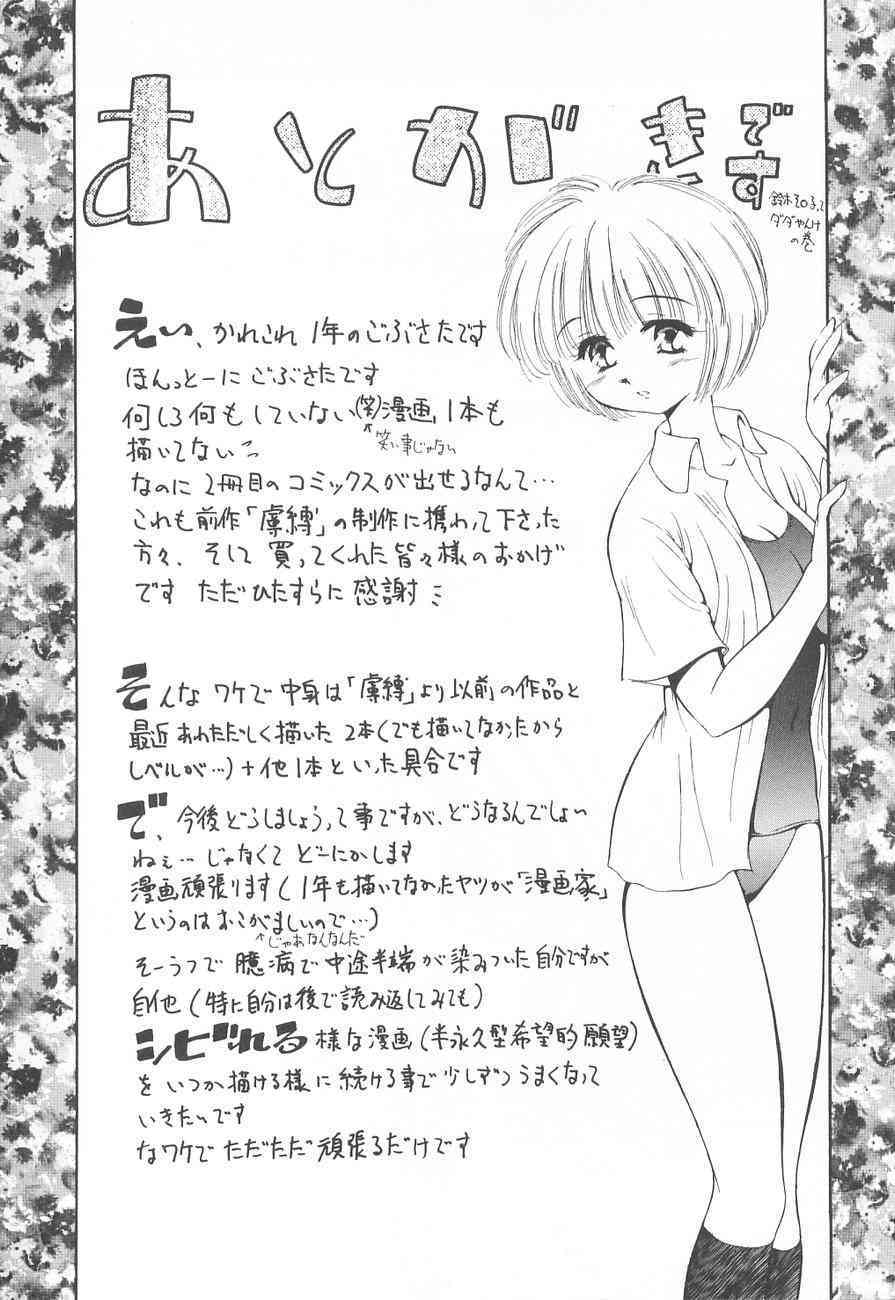 あとがきです
鈴木その子って
ダダやんけ
の巻
えい、かれこれ1年のごぶさたです
ほんっとーにごぶさたです
何しろ何もしていない(笑)漫画1本も
笑い事じゃない
描いてないっ
なのに2冊目のコミックスが出せるなんて…
これも前作「虜縛」の制作に携わって下さった
方々、そして買ってくれた皆々様のおかげ
です ただひたすらに感謝
そんなワケで中身は「虜縛」より以前の作品と
最近あわただしく描いた2本(でも描いてなかったから
レベルが…)+他1本といった具合です
で、今後どうしましょうって事ですが、どうなるんでしょい
ねぇ…じゃなくてどーにかします
漫画頑張ります(1年も描いてなかったヤツが「漫画家」
というのはおこがましいので…)
じゃあなんなんだ
そーゆうで臆病で中途半端が染みついた自分ですが
自他(特に自分は後で読み返してみても)
シビれる様な漫画(半永久型希望的願望)
をいつか描ける様に続ける事で少しずつうまくなって
いきたいです
なワケでただただ頑張るだけです